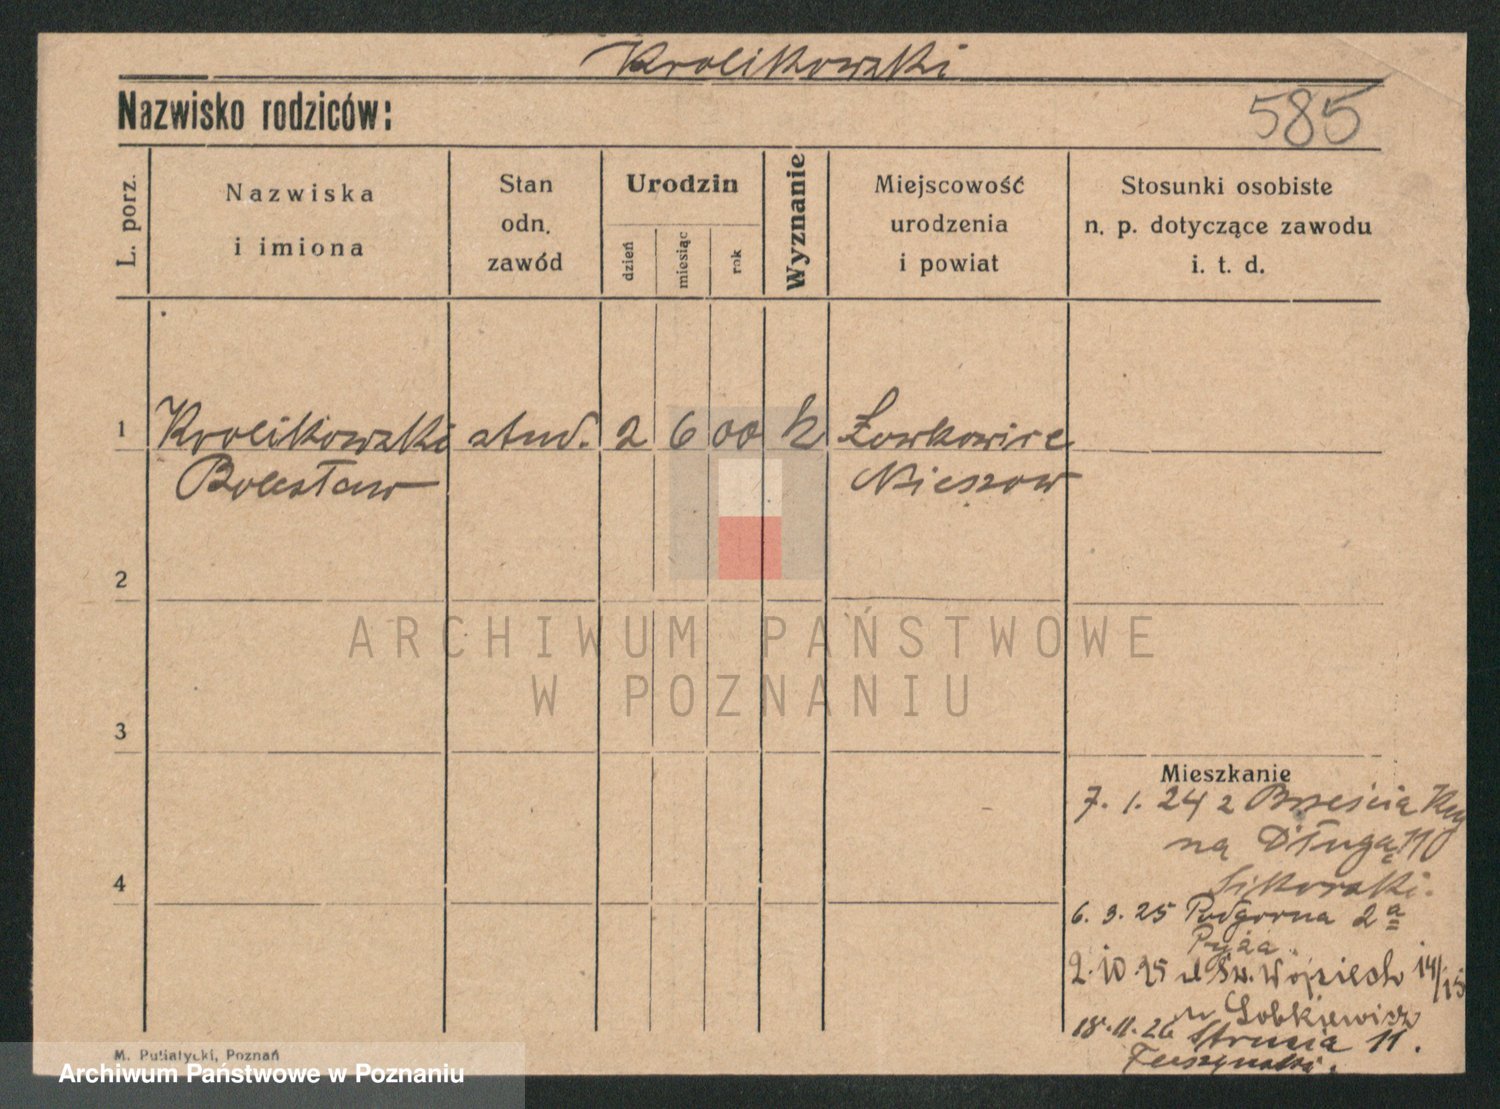 Krolikowski
Nazwisko rodziców:
585
L. porz.
Nazwiska
i imiona
Stan
odn.
zawód
Urodzin
dzień
miesiąc
rok
Wyznanie
Miejscowość
urodzenia
i powiat
Stosunki osobiste
n. p. dotyczące zawodu
i. t. d.
1
Krolikowski stud. 2 6 00 k
Bolesław
Nieszow
2
ARCHIWUM PAŃSTWOWE
W POZNANIU
3
Mieszkanie
7. 1. 24 z Brześcia Kuj
na Długą 110
Sikorski.
4
6. 3. 25 Podgorna 2a
Pyża.
2.10.25 Św. Wojciech 14/15
Lobkiewicz
18.11.26 Strusia 11.
M. Putiatycki, Poznań
Archiwum Państwowe w Poznaniu